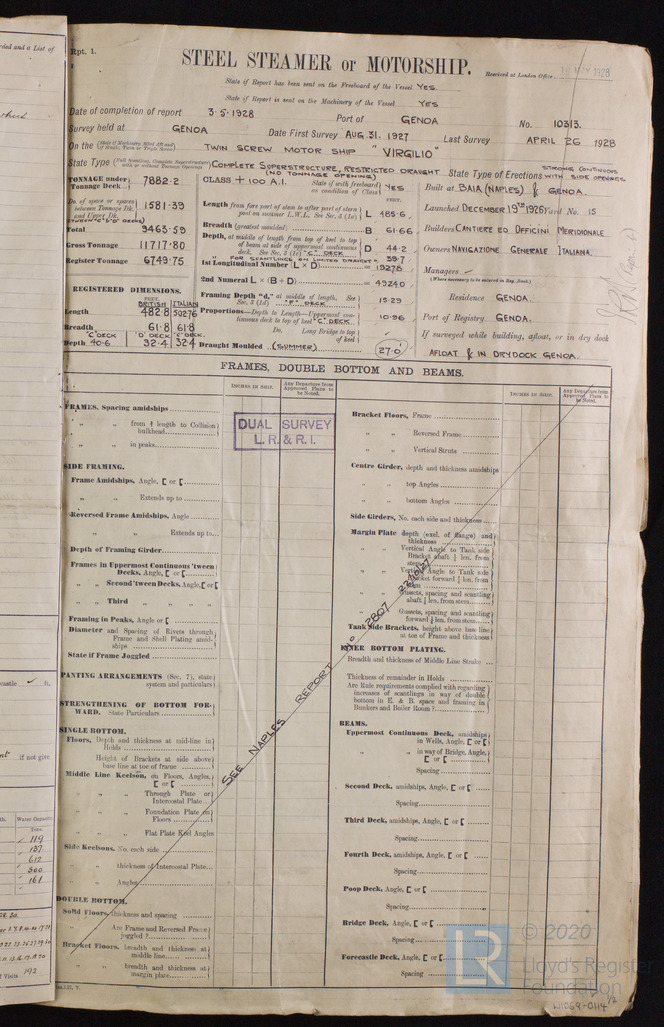 Rpt. 1.
STEEL STEAMER or MOTORSHIP.
Received at London Office 16 MAY 1928
State if Report has been sent on the Freeboard of the Vessel YES.
State if Report is sent on the Machinery of the Vessel YES
Date of completion of report 3.5.1928 Port of GENOA No. 10313.
Survey held at GENOA Date First Survey AUG. 31. 1927 Last Survey APRIL 26 1928
On the TWIN SCREW MOTOR SHIP "VIRGILIO"
State Type COMPLETE SUPERSTRUCTURE, RESTRICTED DRAUGHT (NO TONNAGE OPENING) State Type of Erections STRONG CONTINUOUS WITH SIDE OPENINGS
TONNAGE under Tonnage Deck 7882.2
Do. of space or spaces between Tonnage Dk. and Upper Dk. 1581.39
(BETWEEN "C" & "D" DECKS)
Total 9463.59
Gross Tonnage 11717.80
Register Tonnage 6749.75
REGISTERED DIMENSIONS.
FEET.
BRITISH ITALIAN
Length 482.8 502.76
Breadth 61.8 61.8
"C" DECK "D" DECK "C" DECK.
Depth 40.6 32.4 32.4
CLASS + 100 A.1. State if with freeboard as condition of Class YES
FEET.
Length from fore part of stem to after part of stern post on summer L.W.L. See Sec. 2 (1a) L 485.6
Breadth (greatest moulded) B 61.66
Depth, at middle of length from top of keel to top of beam at side of uppermost continuous deck. See Sec. 2 (1d) "C" DECK D 44.2
" FOR SCANTLINGS ON LIMITED DRAUGHT " 39.7
1st Longitudinal Number (L × D) = 19278
2nd Numeral L × (B + D) = 49240
Framing Depth "d," at middle of length. See Sec. 2 (1d) "F" DECK 15.29
Proportions—Depth to Length—Uppermost continuous deck to top of keel "C" DECK 10.96
Do. Long Bridge to top of keel
Draught Moulded (SUMMER) 27.0'
Built at BAIA (NAPLES) & GENOA.
Launched DECEMBER 19TH 1926 Yard No. 15
Builders CANTIERE ED OFFICINI MERIDIONALE
Owners NAVIGAZIONE GENERALE ITALIANA.
Managers
(Where necessary to be entered in Reg. Book.)
Residence GENOA.
Port of Registry GENOA.
If surveyed while building, afloat, or in dry dock
AFLOAT & IN DRYDOCK GENOA.
FRAMES, DOUBLE BOTTOM AND BEAMS.
INCHES IN SHIP.
Any Departure from Approved Plans to be Noted.
INCHES IN SHIP.
Any Departure from Approved Plans to be Noted.
FRAMES. Spacing amidships
" " from ⅕ length to Collision bulkhead
" " in peaks
DUAL SURVEY
L.R. & R.I.
SIDE FRAMING.
Frame Amidships, Angle, [ or [
" " Extends up to
Reversed Frame Amidships, Angle
" " Extends up to
Depth of Framing Girder
Frames in Uppermost Continuous 'tween Decks, Angle, [ or [
" " Second 'tween Decks, Angle, [ or [
" " Third " " " "
Framing in Peaks, Angle or [
Diameter and Spacing of Rivets through Frame and Shell Plating amidships
State if Frame Joggled
PANTING ARRANGEMENTS (Sec. 7), state system and particulars
STRENGTHENING OF BOTTOM FORWARD. State Particulars
SINGLE BOTTOM.
Floors, Depth and thickness at mid-line in Holds
Height of Brackets at side above base line at toe of frame
Middle Line Keelson, on Floors, Angles, [ or [
" " " Through Plate or Intercostal Plate
" " " Foundation Plate on Floors
" " " Flat Plate Keel Angles
Side Keelsons, No. each side
" " thickness of Intercostal Plate
" " Angles
DOUBLE BOTTOM.
Solid Floors, thickness and spacing
" " Are Frame and Reversed Frame joggled?
Bracket Floors, breadth and thickness at middle line
" " breadth and thickness at margin plate
Bracket Floors, Frame
" " Reversed Frame
" " Vertical Struts
Centre Girder, depth and thickness amidships
" " top Angles
" " bottom Angles
Side Girders, No. each side and thickness
Margin Plate depth (excl. of flange) and thickness
" " Vertical Angle to Tank side Bracket abaft ¼ len. from stem
" " Vertical Angle to Tank side Bracket forward ¼ len. from stem
" " Gussets, spacing and scantling abaft ¼ len. from stem
" " Gussets, spacing and scantling forward ¼ len. from stem
Tank Side Brackets, height above base line at toe of Frame and thickness
INNER BOTTOM PLATING.
Breadth and thickness of Middle Line Strake
Thickness of remainder in Holds
Are Rule requirements complied with regarding increases of scantlings in way of double bottom in E. & B. space and framing in Bunkers and Boiler Room?
BEAMS.
Uppermost Continuous Deck, amidships in Wells, Angle, [ or [
" " in way of Bridge, Angle, [ or [
Spacing
Second Deck, amidships, Angle, [ or [
Spacing
Third Deck, amidships, Angle, [ or [
Spacing
Fourth Deck, amidships, Angle, [ or [
Spacing
Poop Deck, Angle, [ or [
Spacing
Bridge Deck, Angle, [ or [
Spacing
Forecastle Deck, Angle, [ or [
Spacing
SEE NAPLES REPORT No 2807 22/10/27
LR © 2020
Lloyd's Register
Foundation
1/2
and a List of
ft.
if not give
Water Capacity
Tons.
119
137
612
500
161
192